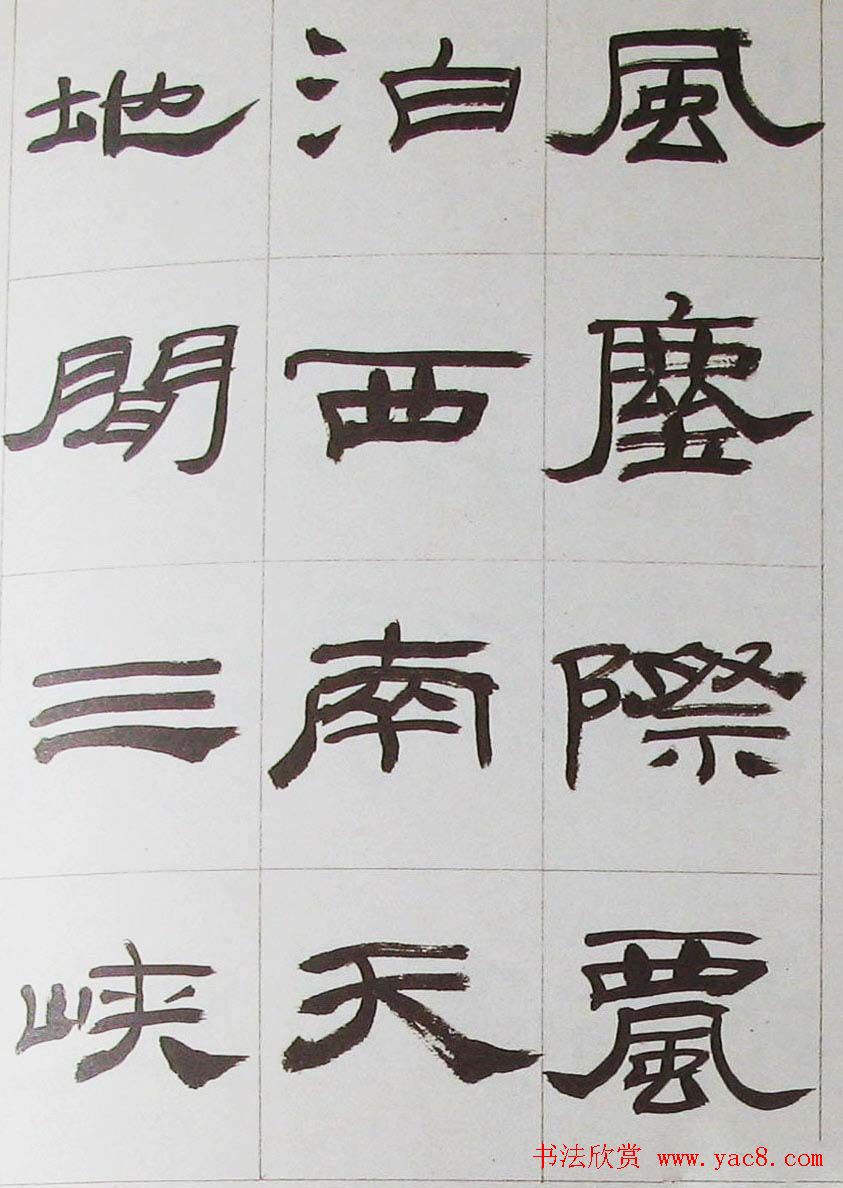 風塵際飄
泊西南天
地間三峽
书法欣赏 www.yac8.com